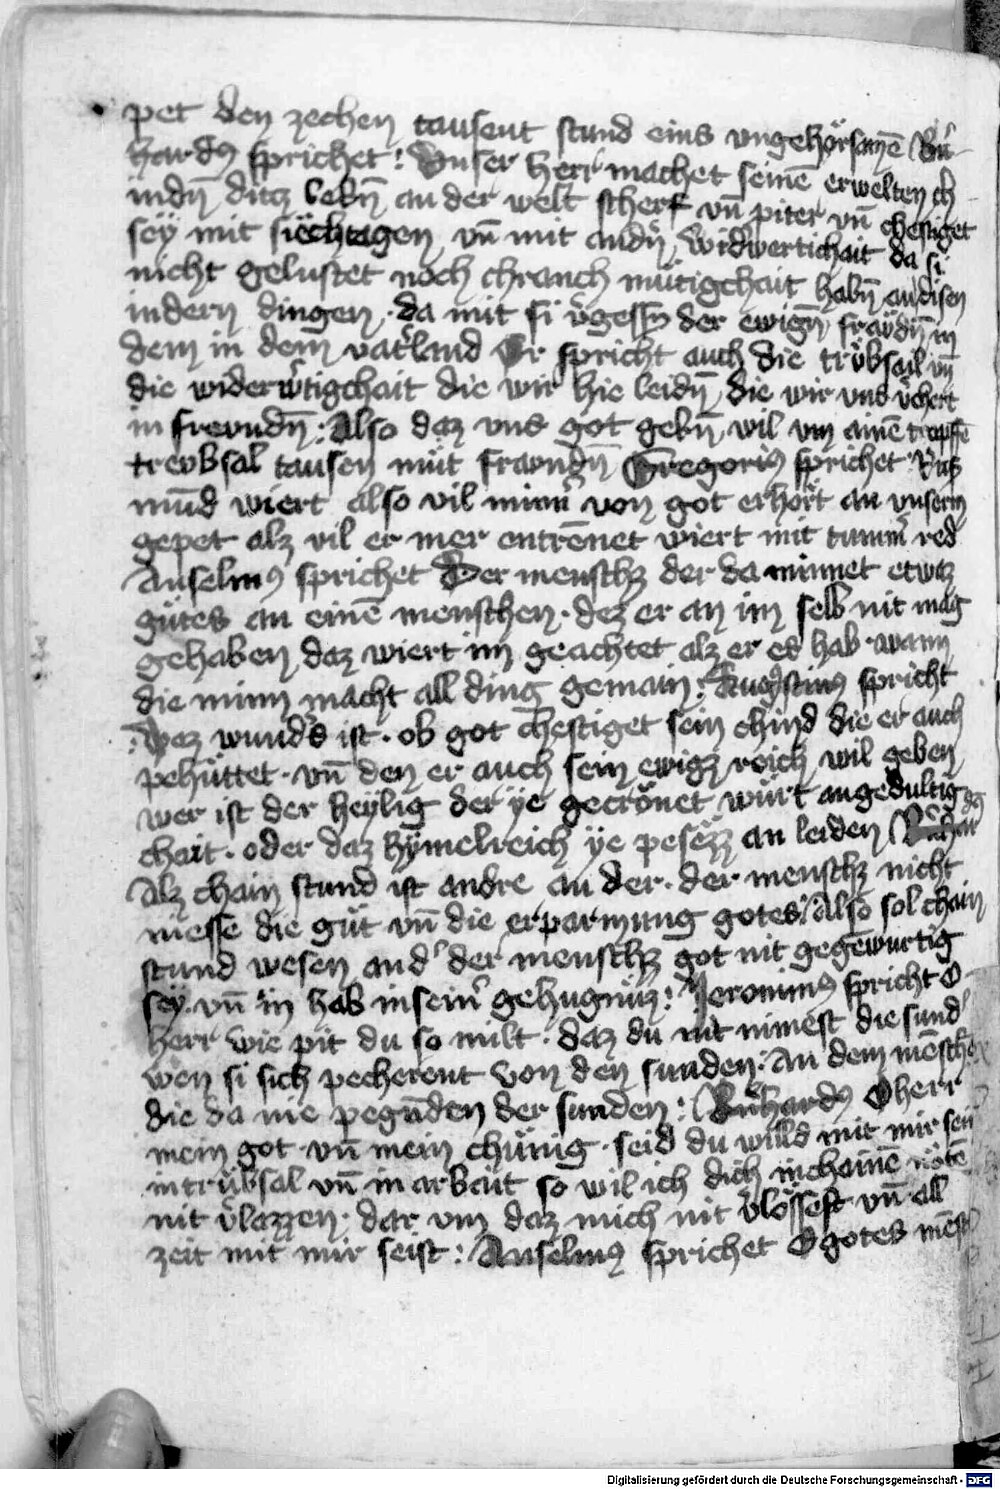 pet den zechen tausent stund eins vngehörsamē Bͬn
hardꝰ sprichet : Vnser herr machet seinē erwelten ch
indn̄ ditz lebn̄ an der welt scherf vn̄ piter vn̄ chestiget
sey mit siechtagen vn̄ mit andn̄ widwertichait da si
nicht gelustet noch chranch mütigchait habn̄ an disen
indern dingen · da mit si v̓gessn̄ der ewign̄ fraẅdn̄ in
dem in dem vat̓land Er spricht auch die trübsail vn̄
die widerw̓tigchait die wir hie leidn̄ die wir vns v̓chert
in frewndn̄ : Also daz vns got gebn̄ wil vm ainē tropffē
trevbsal tausen müt frawndn̄ Gregoriꝰ sprichet
mūd wiert also vil minn̓ von got erhört an vnserm
gepet alz vil er mer entrēnet wiert mit tumm̓ red
Anselmꝰ sprichet Der menschz der da minnet etwaz
gütes an einē menschen · dez er an im selb nit mag
gehaben daz wiert im geachtet alz er es hab · wann
die minn macht all ding gemain : Augꝰstinꝰ spricht
: Waz wund̓s ist · ob got chestiget sein chind die er auch
pehüttet · vn̄ den er auch sein ewigz reich wil geben
wer ist der heylig der ye gecrönet würt angedultig
chait · oder daz hymelreich ye pesezz an leiden
Alz chain stund ist andre an der · der menschz nicht
niesse die güt vn̄ die erparmung gotes : Also sol chain
stund wesen and̓ der menschz got nit gegēwurtig
sey · vn̄ in hab in sein̓ gehugnüz : Jeronimꝰ spricht O
herr wie pit du so milt · daz du nit nimest die sund̓
wen si sich pecherent von den sunden : An dem mēsch
die da nie pegūden der sunden : Bn̓hardꝰ O herr
mein got · vn̄ mein chünig · seid du wild mit mir sein
in trübsal vn̄ in arbait so wil ich dich in chainē nöten
nit v̓lazzen · dar vm daz mich nit v̓lössest vn̄ all
zeit mit mir seist : Anselmꝰ sprichet O gotes mēsch
Digitalisierung gefördert durch die Deutsche Forschungsgemeinschaft - DFG